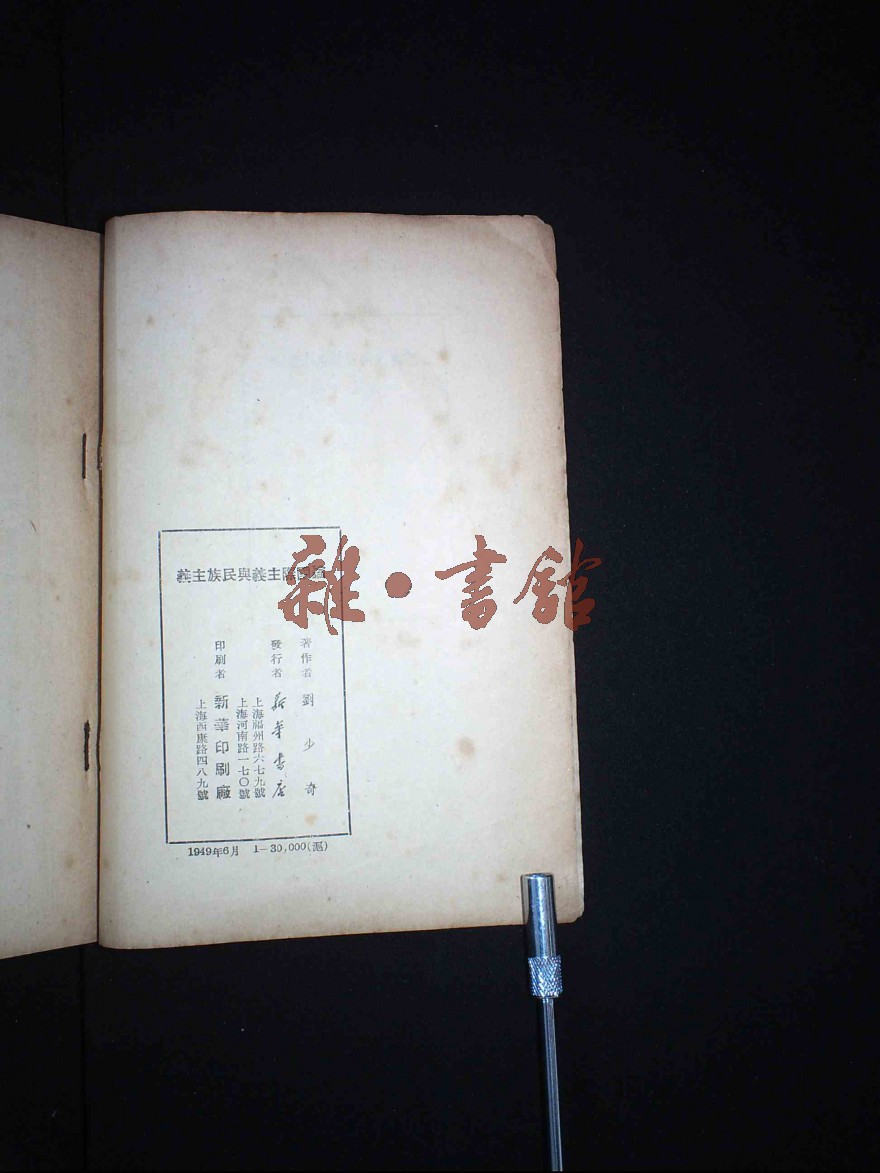 論國際主義與民族主義
著作者 劉少奇
發行者 新華書店
上海福州路六七九號
上海河南路一七〇號
印刷者 新華印刷廠
上海西康路四八九號
1949年6月 1—30,000(滬)
雜·書館